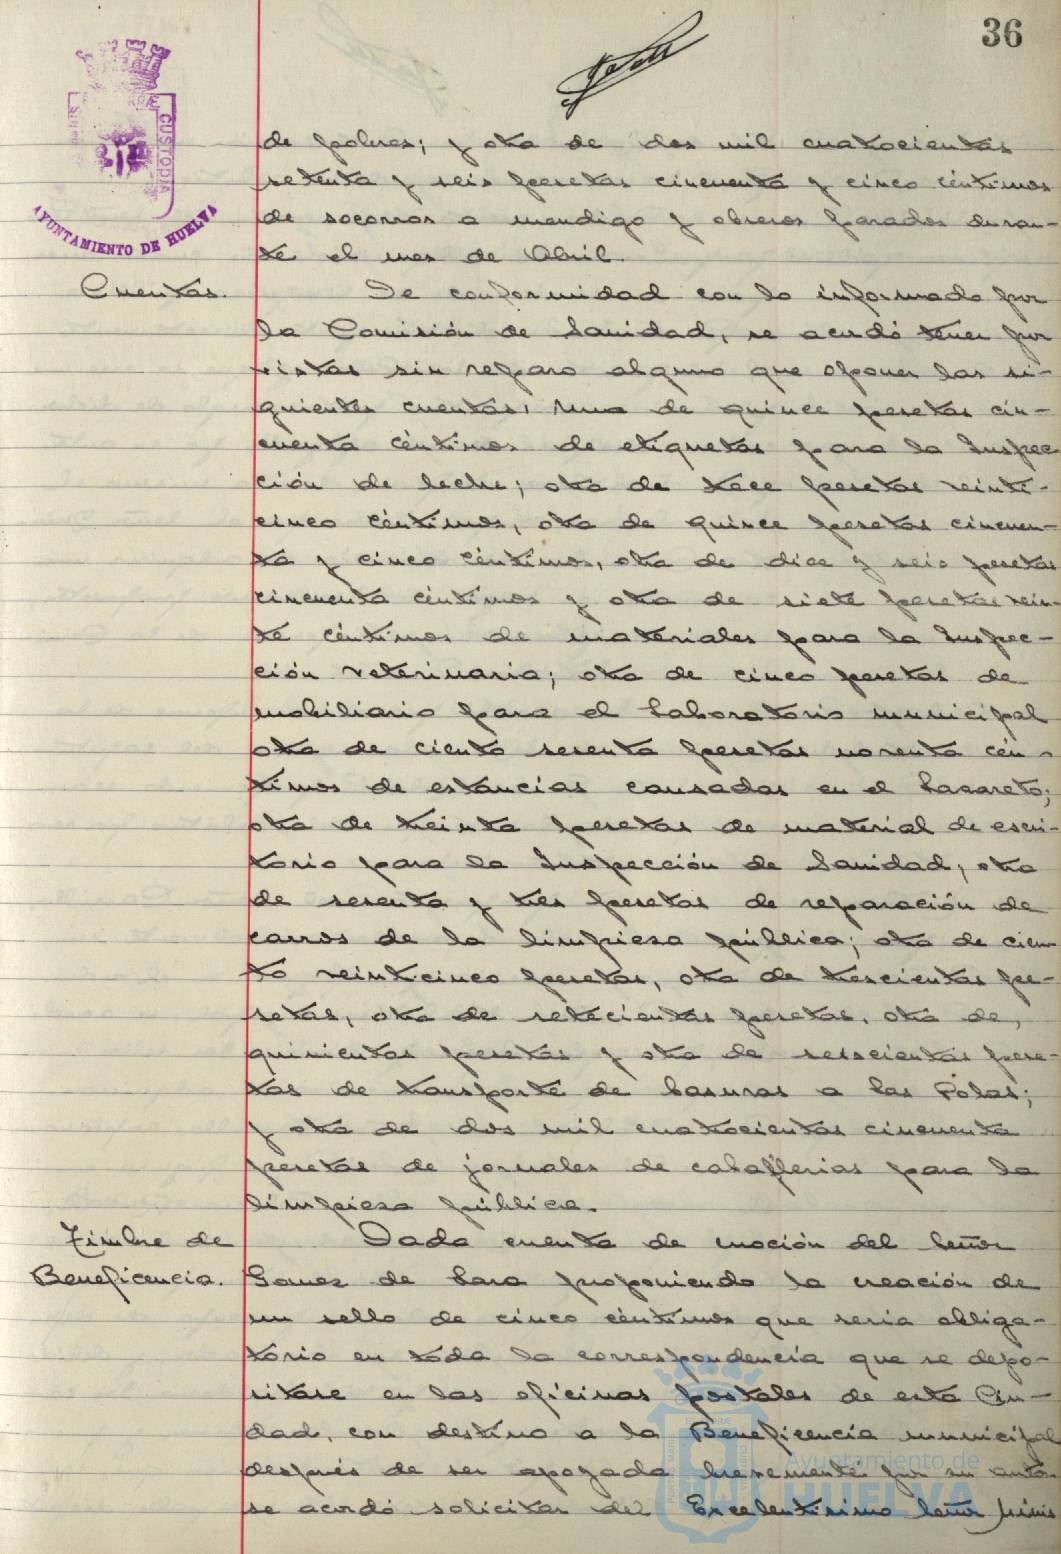 36
CUSTODIA
AYUNTAMIENTO DE HUELVA
de pobres; y otra de dos mil cuatrocientas
setenta y seis pesetas cincuenta y cinco céntimos
de socorros a mendigo y obreros parados duran-
te el mes de Abril.
Cuentas.
De conformidad con lo informado por
la Comisión de Sanidad, se acordó tener por
vistas sin reparo alguno que oponer las si-
guientes cuentas: Una de quince pesetas cin-
cuenta céntimos de etiquetas para la Inspec
ción de leche; otra de trece pesetas veinti-
cinco céntimos, otra de quince pesetas cincuen-
ta y cinco céntimos, otra de diez y seis pesetas
cincuenta céntimos y otra de siete pesetas vein-
te céntimos de materiales para la Inspec-
ción veterinaria; otra de cinco pesetas de
mobiliario para el Laboratorio municipal
otra de ciento sesenta pesetas noventa cén-
timos de estancias causadas en el Lazareto;
otra de treinta pesetas de material de escri-
torio para la Inspección de Sanidad; otra
de sesenta y tres pesetas de reparación de
carros de la limpieza pública; otra de cien-
to veinticinco pesetas, otra de trescientas pe-
setas, otra de setecientas pesetas, otra de,
quinientas pesetas y otra de seiscientas pese-
tas de transporte de basuras a las Colas;
y otra de dos mil cuatrocientas cincuenta
pesetas de jornales de caballerias para la
limpieza pública.
Timbre de
Beneficencia.
Dada cuenta de moción del Señor
Gomez de Lara proponiendo la creación de
un sello de cinco céntimos que seria obliga-
torio en toda la correspondencia que se depo-
sitase en las oficinas postales de esta Ciu-
dad, con destino a la Beneficencia municipal
después de ser apoyada brevemente por su autor
se acordó solicitar del Excelentísimo Señor Minis
Ayuntamiento de
HUELVA